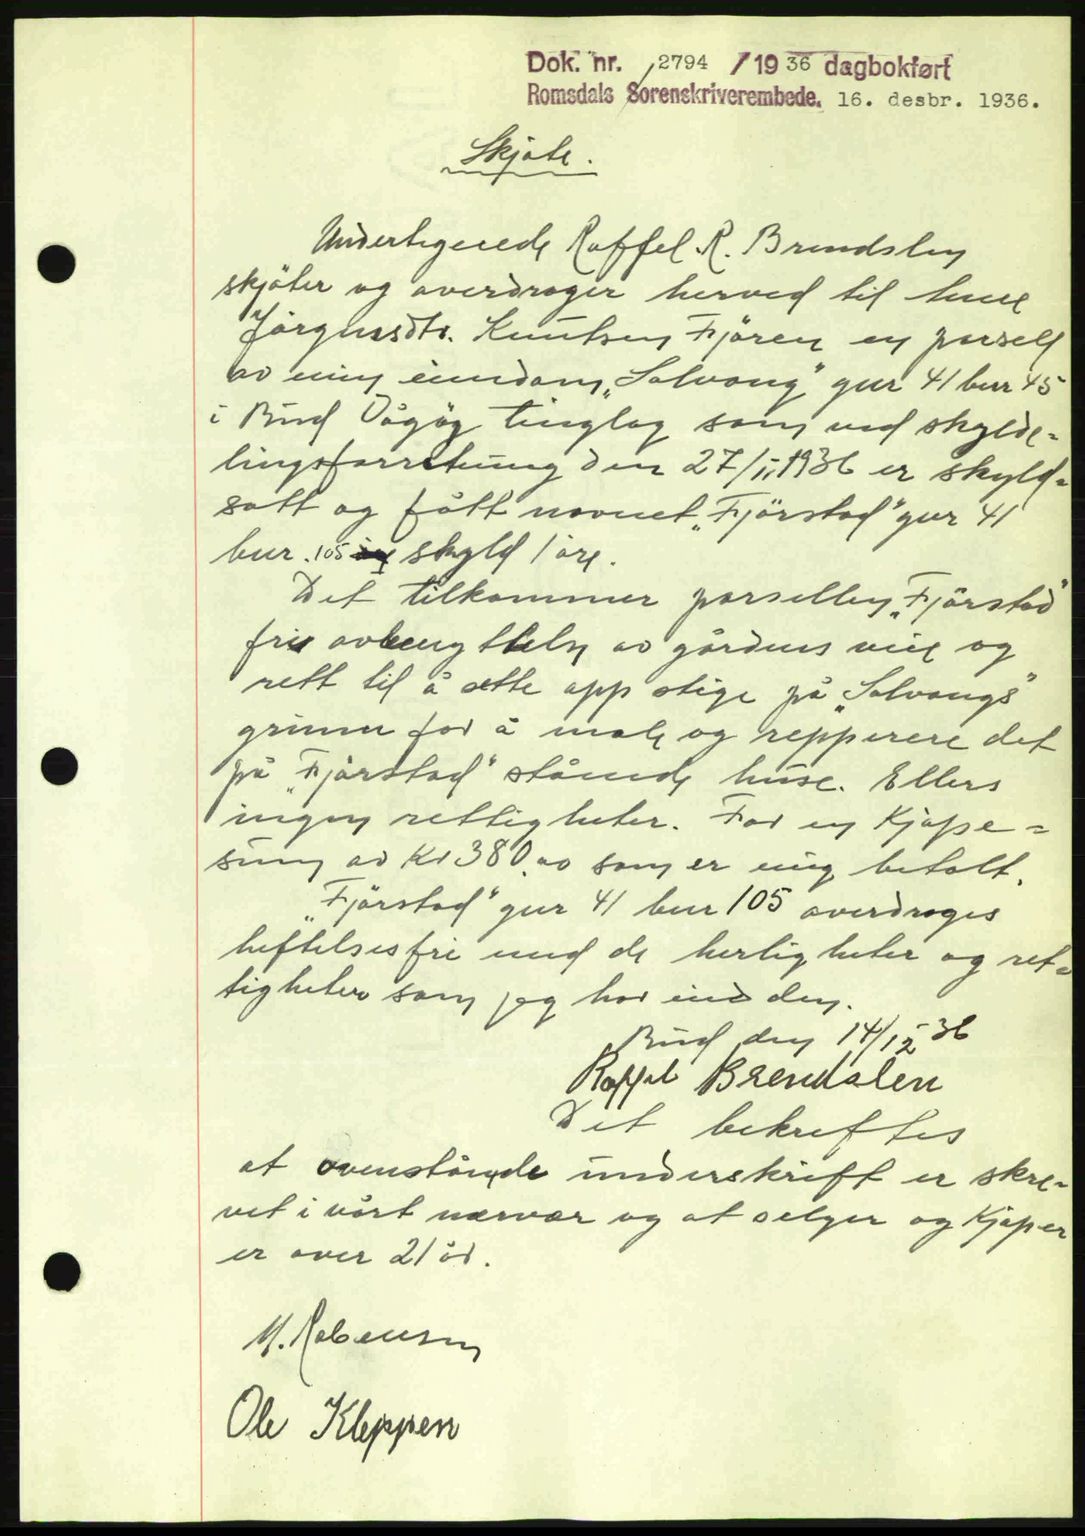 Dok. nr. 2794 / 19 36 dagbokført
Romsdals Sorenskriverembede. 16. desbr. 1936.
Skjøte.
Undertegnede Raffel R. Brendslen
skjöter og overdrager herved til
Jørgensdtr. Knutsen Fjören en parsell
av min eiendom „Solvang" gnr 41 bnr 45
i Bud Vågöy tinglag som ved skylde-
lingsforretning den 27/11 1936 er skyld-
satt og fått navnet „Fjörstad" gnr 41
bnr. 105 skyld 1 öre.
Det tilkommer parsellen „Fjörstad"
fri avbenyttelse av gårdens veie og
rett til å sette opp stige på „Solvangs"
grunn for å male og repperere det
på „Fjörstad" stående huse. Ellers
ingen rettigheter. For en Kjøpe-
sum av Kr 380.00 som er mig betalt.
„Fjörstad" gnr 41 bnr 105 overdrages
heftelsesfri med de herligheter og ret-
tigheter som jeg har eied den.
Bud den 14/12 36
Raffel Brendslen
Det bekreftes
at ovenstående underskrift er skre-
vet i vårt nærvær og at selger og Kjøper
er over 21 år.
Ole Kleppen